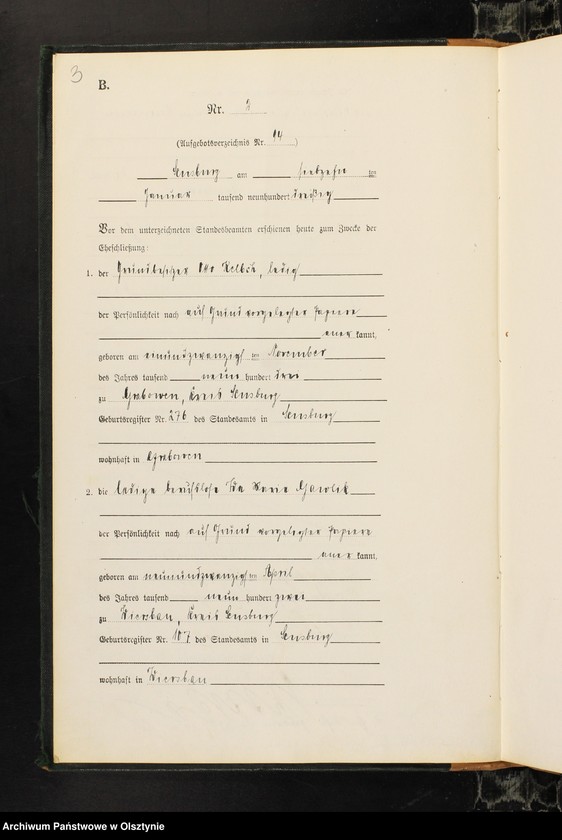 3
B.
Nr. 2
(Aufgebotsverzeichnis Nr. 14)
Sensburg am siebzehn ten
Januar tausend neunhundert dreißig
Vor dem unterzeichneten Standesbeamten erschienen heute zum Zwecke der
Eheschließung:
1. der Grundbesitzer Otto, ledig
der Persönlichkeit nach auf Grund vorgelegter Papiere
aner kannt,
geboren am einundzwanzigsten November
des Jahres tausend neun hundert drei
zu Grabowen, Kreis Sensburg
Geburtsregister Nr. 276 des Standesamts in Sensburg
wohnhaft in Grabowen
2. die ledige berufslose Ida Marie Gawlik
der Persönlichkeit nach auf Grund vorgelegter Papiere
aner kannt,
geboren am neunundzwanzigsten April
des Jahres tausend neun hundert zwei
zu Wiersbau, Kreis Sensburg
Geburtsregister Nr. 107 des Standesamts in Sensburg
wohnhaft in Wiersbau
Archiwum Państwowe w Olsztynie